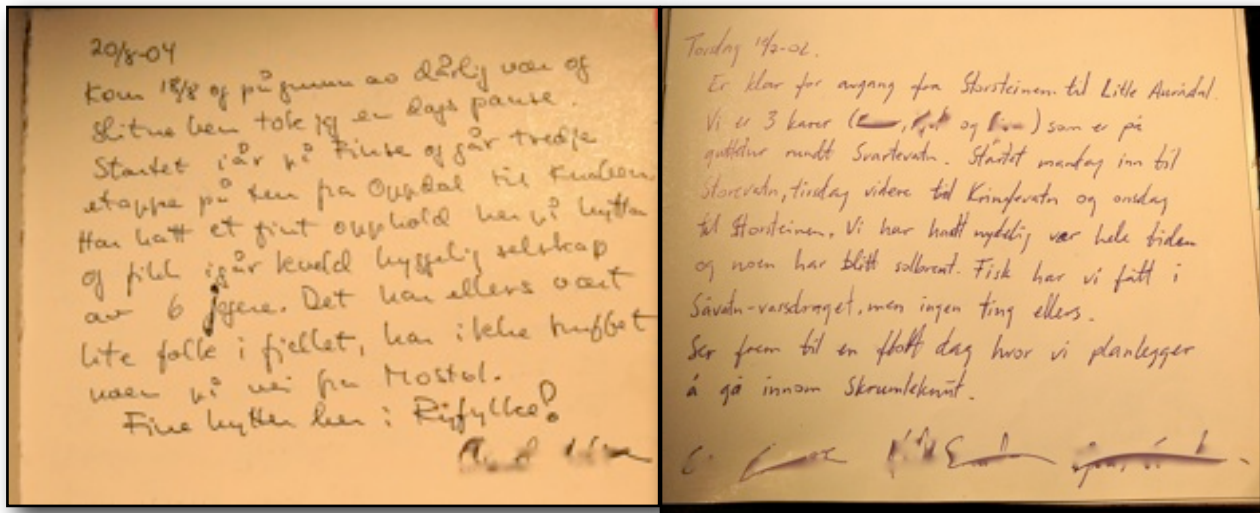 20/8-04
Kom 18/8 og på grunn av dårlig vær og
slitne ben tok jeg en dags pause.
Startet i år på Finse og går tredje
etappe på turen fra Oppdal til Knaben
Har hatt et fint opphold her på hytta
og fikk igår kveld hyggelig selskap
av 6 jegere. Det har ellers vært
lite folk i fjellet, har ikke truffet
noen på vei fra Mostøl.
Fine hytter her i Ryfylke!
Torsdag 11/7-02.
Er klar for avgang fra Storsteinen til Litle Aurådal.
Vi er 3 karer ( , og ) som er på
guttetur rundt Svartevatn. Startet mandag inn til
Storevatn, tirsdag videre til Kringlevatn og onsdag
til Storsteinen. Vi har hatt nydelig vær hele tiden
og noen har blitt solbrent. Fisk har vi fått i
Såvatn-vassdraget, men ingen ting ellers.
Ser frem til en flott dag hvor vi planlegger
å gå innom Skrumleknut.